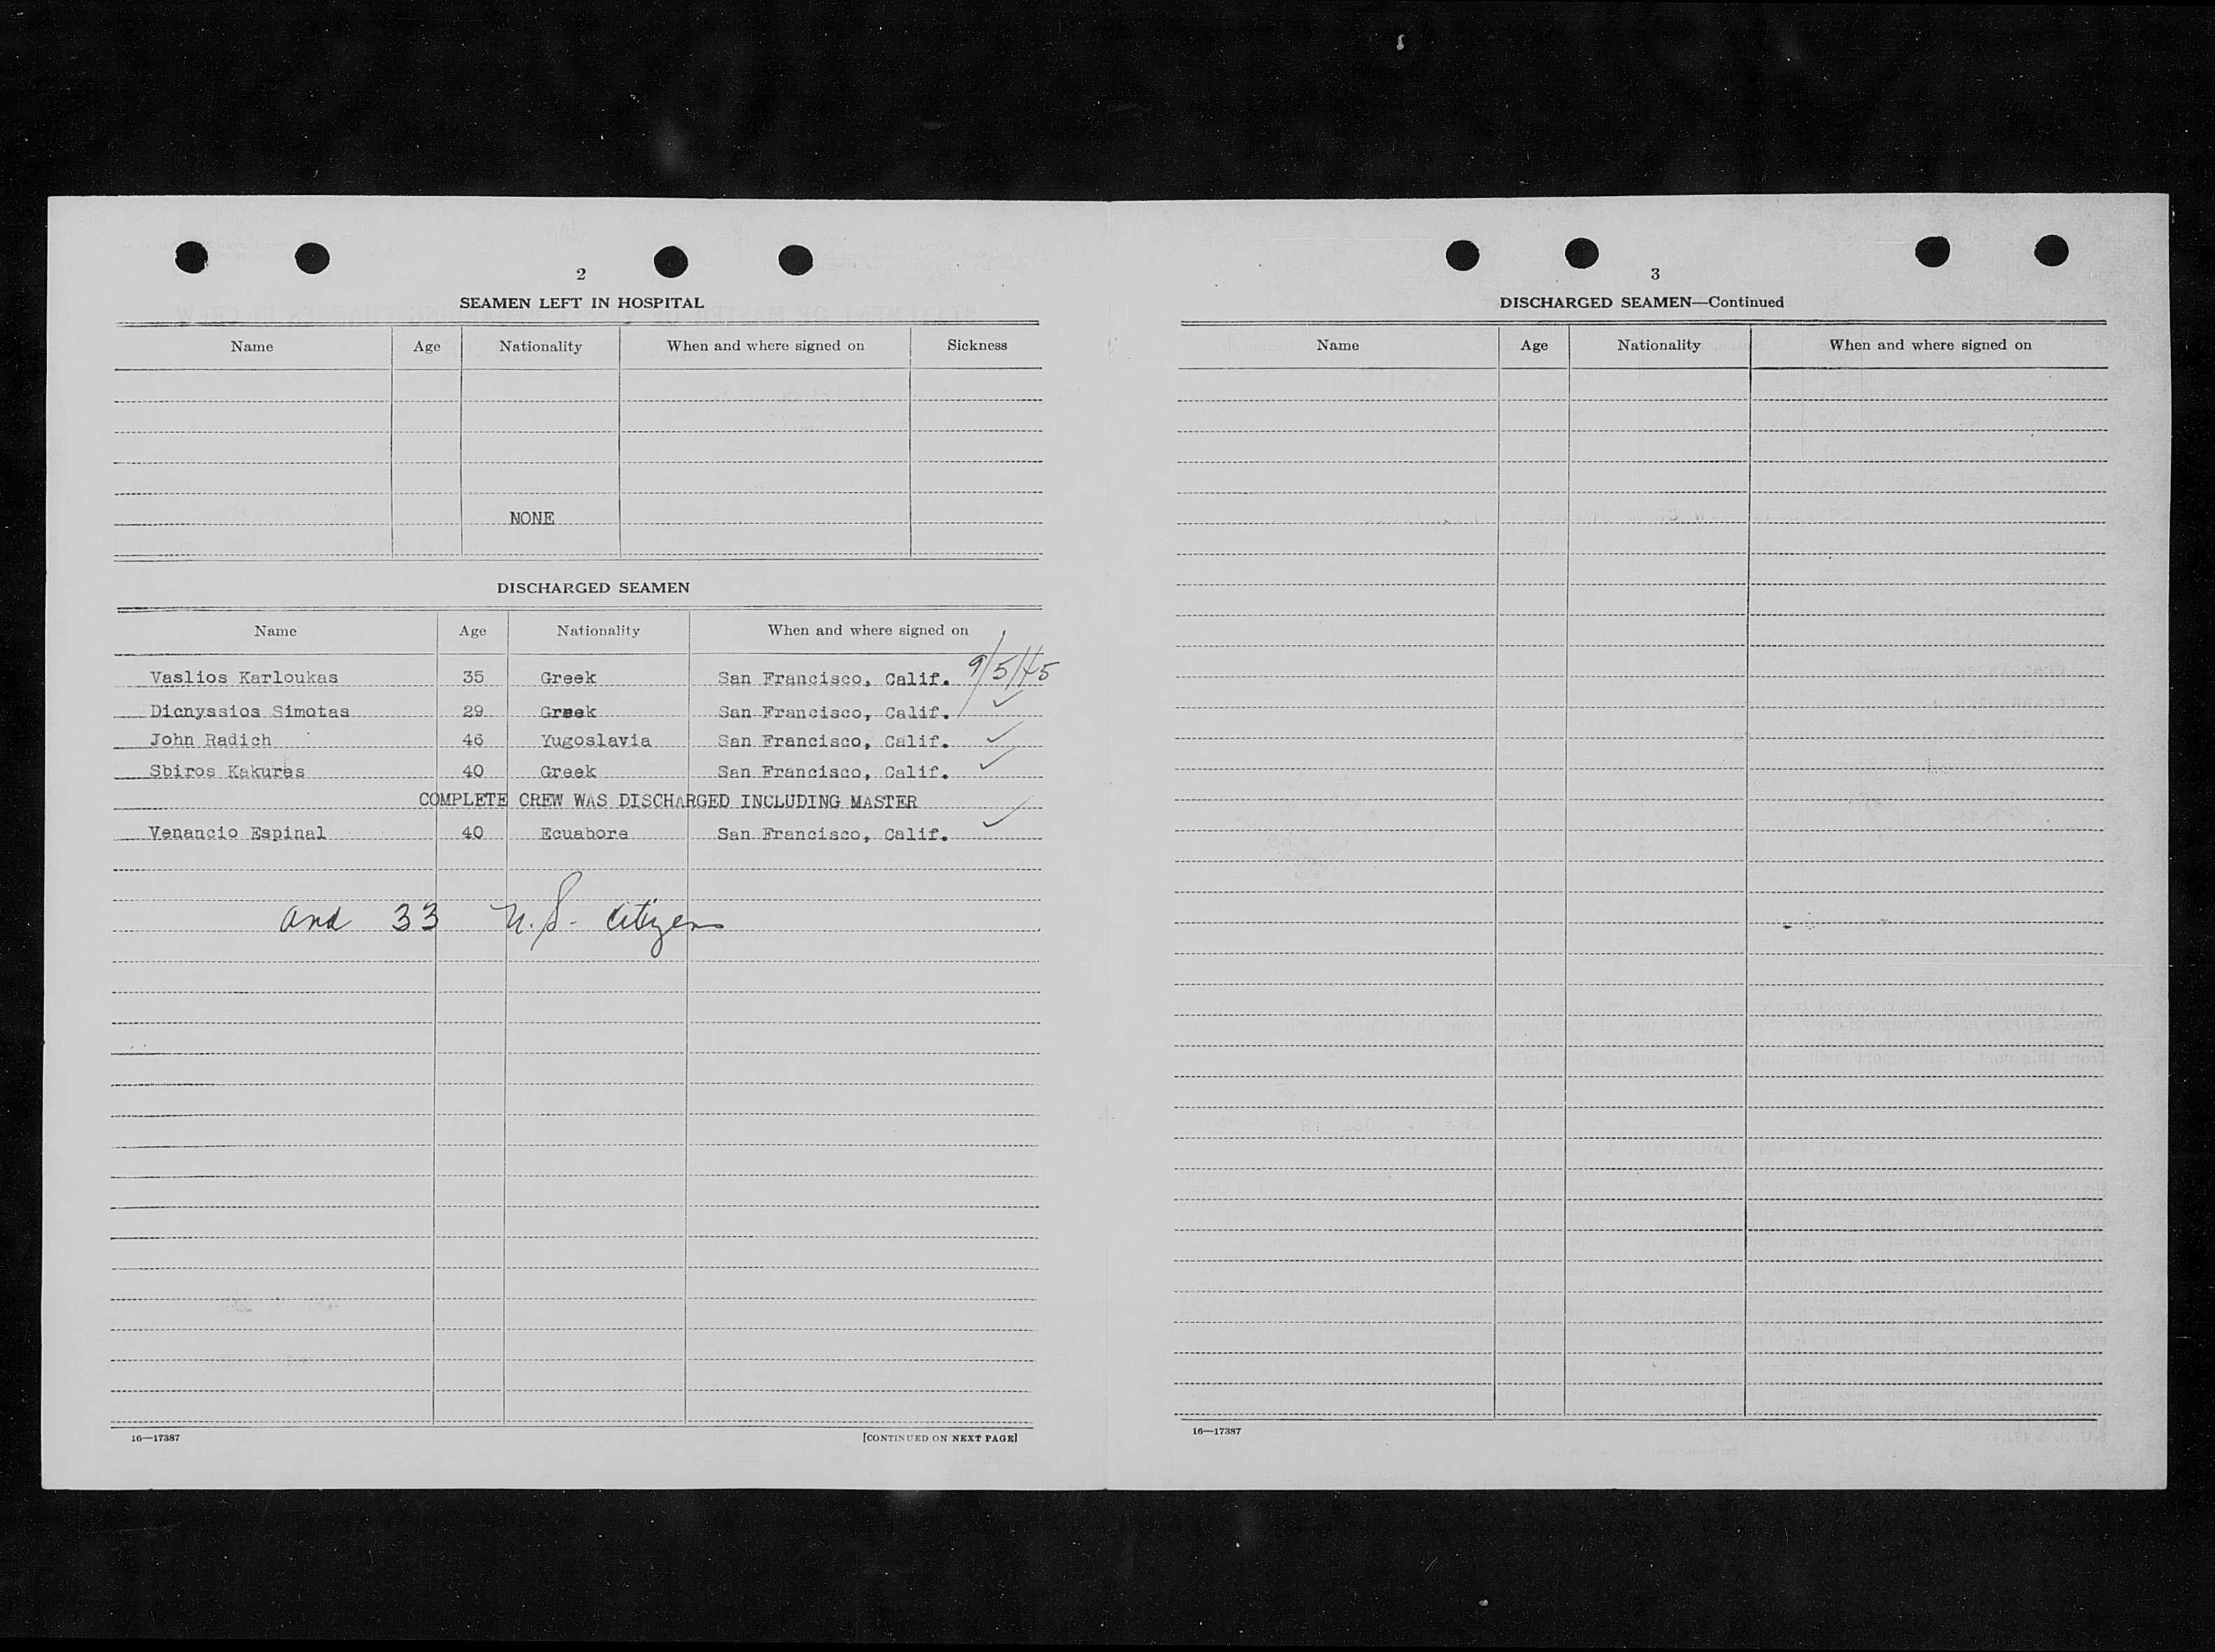 2
SEAMEN LEFT IN HOSPITAL
Name Age Nationality When and where signed on Sickness
NONE
DISCHARGED SEAMEN
Name Age Nationality When and where signed on
Vaslios Karloukas 35 Greek San Francisco, Calif. 9/5/45
Dionyssios Simotas 29 Greek San Francisco, Calif. ✓
John Radich 46 Yugoslavia San Francisco, Calif. ✓
Sbiros Kakures 40 Greek San Francisco, Calif. ✓
COMPLETE CREW WAS DISCHARGED INCLUDING MASTER
Venancio Espinal 40 Ecuabore San Francisco, Calif. ✓
and 33 U.S. citizens
16—17387 [CONTINUED ON NEXT PAGE]
3
DISCHARGED SEAMEN—Continued
Name Age Nationality When and where signed on
16—17387